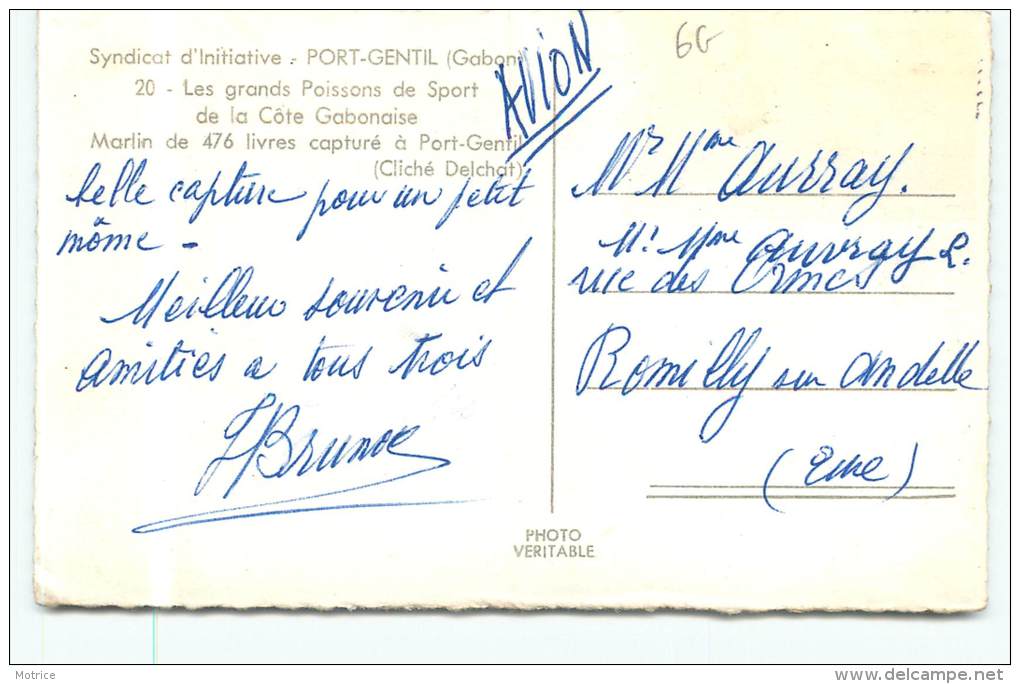 Syndicat d'Initiative - PORT-GENTIL (Gabon)
20 - Les grands Poissons de Sport
de la Côte Gabonaise
Marlin de 476 livres capturé à Port-Gentil
(Cliché Delchat)
AVION
6G
belle capture pour un petit
môme -
Meilleur souvenir et
amitiés a tous trois
Mr Mme Auvray.
Mr Mme Auvray L.
rue des Ormes
Romilly sur andelle
(Eure)
PHOTO
VERITABLE
Motrice
delcampe.net